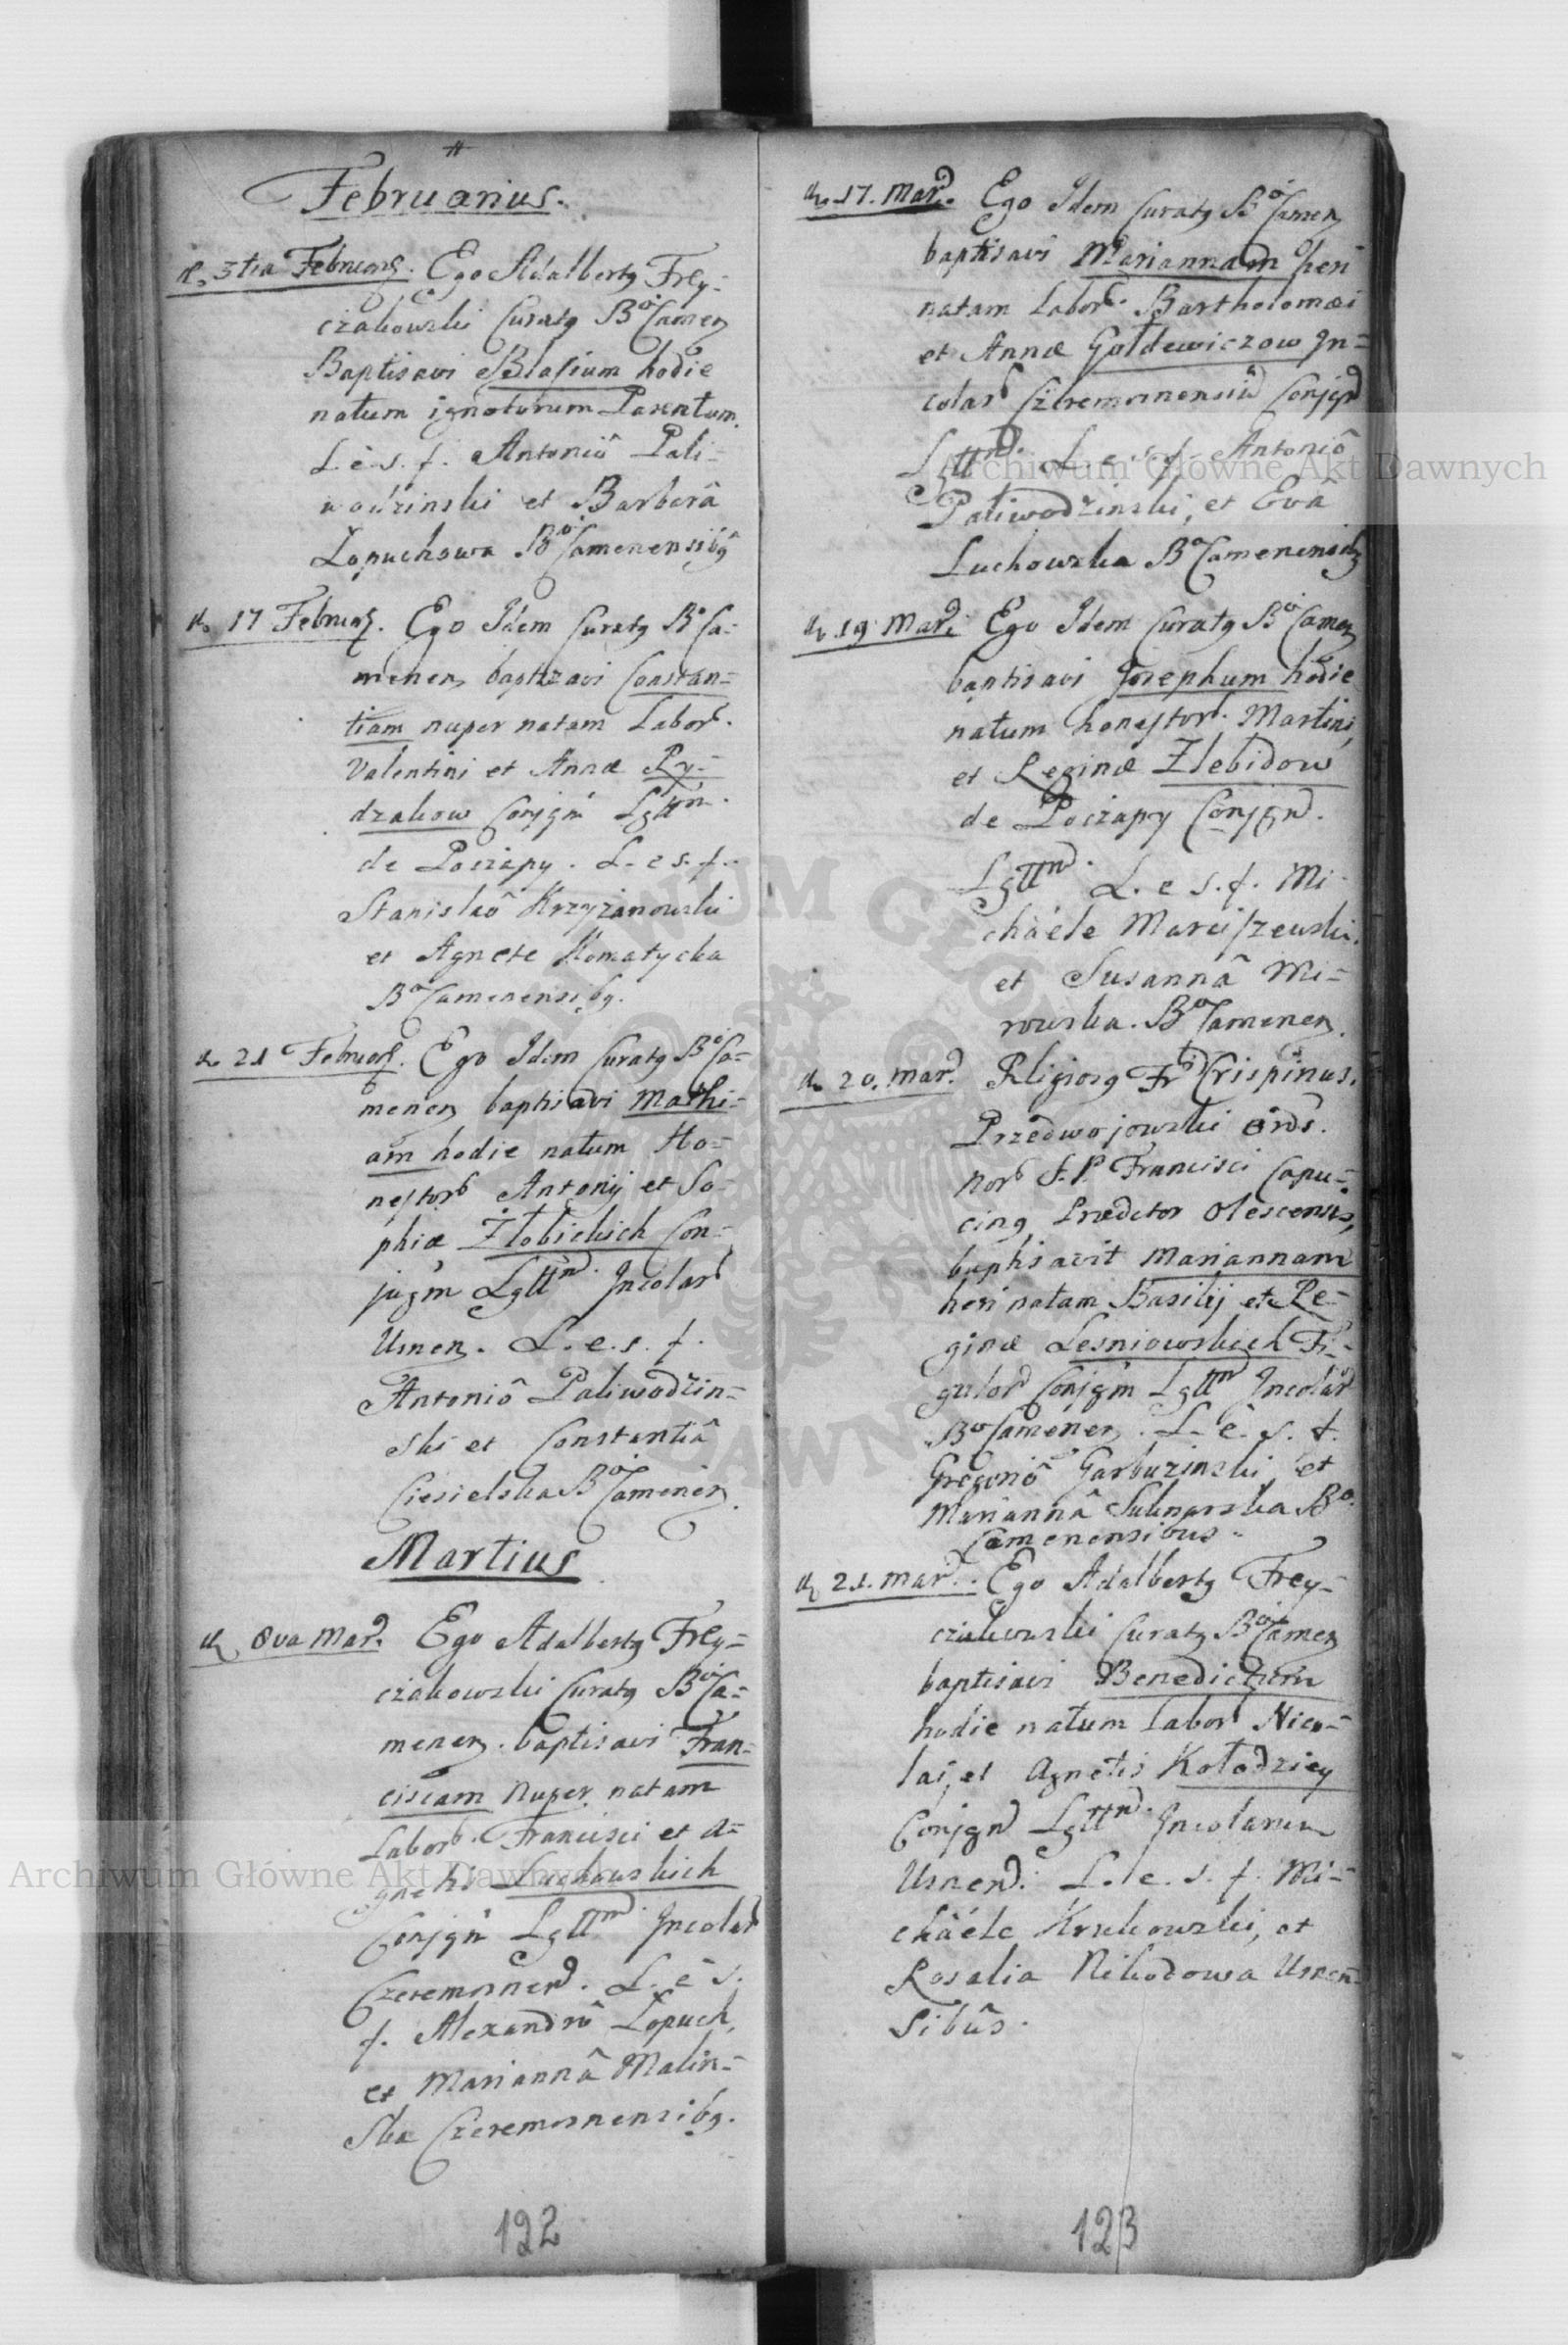 Februarius.
d. 3tia Februarij. Ego Adalbertg Frey-
czakowski Curatg Bo Camen
Baptisavi Blasium hodie
natum ignotorum Parentum.
L. e. s. f. Antoniô Pali-
wodzinski et Barbarâ
Lopuchowa Bo Camenensibg
d. 17 Februar. Ego Idem Curatg Bo Ca-
menen baptizavi Constan-
tiam nuper natam Labor.
Valentini et Annæ Ry-
dzakow Conjgm Lgttm.
de Pociapy. L. e s. f.
Stanislaô Krzyżanowski
et Agnete Komatycka
Bo Camenensibg.
d. 21 Februar. Ego Idem Curatg Bo Ca-
menen baptisavi Mathi-
am hodie natum Ho-
nestor Antonij et So-
phiæ Żłobickich Con-
jugm Lgttm. Incolar
Usnen. L. e. s. f.
Antoniô Paliwodzin-
ski et Constantiâ
Ciesielska Bo Camenen.
Martius
d. 8va Mar. Ego Adalbertg Frey-
czakowski Curatg Bo Ca-
menen. baptisavi Fran-
ciscam nuper natam
Labor. Francisci et A-
gnetis Luchowskich
Conjgm Lgttm. Incolar
Czeremosnen. L. e s.
f. Alexandrô Lopuch,
et Mariannâ Malin-
ska Czeremosnensibg.
192
d. 17. Mar. Ego Idem Curatg Bo Camen
baptisavi Mariannam heri
natam Labor. Bartholomæi
et Annæ Goldewiczow In-
colar Czeremosnensium Conjgm
Lgttm. L. e s. f. Antoniô
Paliwodzinski, et Evâ
Luchowska Bo Camenensibg
d. 19 Mar. Ego Idem Curatg Bo Camen
baptisavi Josephum hodie
natum honestor. Martini,
et Reginæ Zlebidow
de Pociapy Conjgm.
Lgttm. L. e s. f. Mi-
chaéle Marciszewski.
et Susannâ Mi-
rowska. Bo Camenen.
d. 20. Mar. Religiosg Fr Crispinus.
Przedwojowski ords.
Nor S. P. Francisci Capu-
cing, Prædctor Olescensis,
baptisavit Mariannam
heri natam Basilij et Re-
ginæ Lesniowskich Fi-
gulor Conjgm Lgttm Incolar
Bo Camenen. L. e. s. f.
Gregoriô Garbuzinski et
Mariannâ Suknarska Bo.
Camenensibus.
d. 21. Mar. Ego Adalbertg Frey-
czakowski Curatg Bo Camen
baptisavi Benedictum
hodie natum Labor Nico-
lai, et Agnetis Kołodziey
Conjgm Lgttm. Incolarum
Usnen. L. e. s. f. Mi-
chaéle Krukowski, et
Rosalia Nikodowa Usnen-
sibûs.
123
Archiwum Główne Akt Dawnych
Archiwum Główne Akt Dawnych